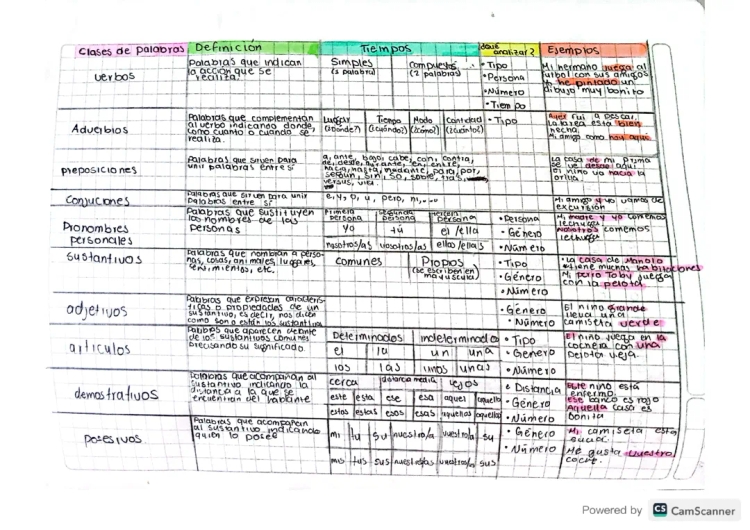 Clases de palabras Definición Tiempos ¿Qué analizar? Ejemplos
verbos
Palabras que indican
la acción que se
realiza.
Simples
(1 palabra)
Compuestos
(2 palabras)
• Tipo
• Persona
• Número
• Tiempo
Mi hermano juega al
futbol con sus amigos
Yo he pintado un
dibujo muy bonito
Adverbios
Palabras que complementan
al verbo indicando donde,
como cuanto o cuando se
realiza.
Lugar
(¿donde?)
Tiempo
(¿cuándo?)
Modo
(¿cómo?)
Cantidad
(¿cuánto?)
• Tipo
Ayer fui a pescar.
La tarea esta bien
hecha.
Mi amigo come hoy aquí
preposiciones
Palabras que sirven para
unir palabras entre sí
a, ante, bajo, cabe, con, contra,
de, desde, durante, en, entre,
hacia, hasta, mediante, para, por,
según, sin, so, sobre, tras,
versus, vía.
La casa de mi prima
se ve desde aquí
El niño va hacia la
orilla
Conjuciones
Palabras que sirven para unir
palabras entre sí
e, y, o, u, pero, ni,...
Mi amigo y yo vamos de
excursión
Pronombres
personales
Palabras que sustituyen
los nombres de las
personas
Primera
persona
segunda
persona
tercera
persona
yo tú el/ella
nosotros/as vosotros/as ellos/ellas
• Persona
• Género
• Número
Mi madre y yo comemos
lechuga
Nosotros comemos
lechuga
sustantivos
Palabras que nombran a perso-
nas, cosas, animales, lugares,
sentimientos, etc.
comunes
Propios
(se escriben en
mayúscula)
• Tipo
• Género
• Número
• La casa de Manolo
tiene muchas habitaciones
Mi perro Toby juega
con la pelota
adjetivos
Palabras que expresan caracterís-
ticas o propiedades de un
sustantivo, es decir, nos dicen
como son o están los sustantivos
• Género
• Número
El niño grande
lleva una
camiseta verde
artículos
Palabras que aparecen delante
de los sustantivos comunes
precisando su significado.
Determinados indeterminados
el la un una
los las unos unas
• Tipo
• Genero
• Número
El niño juega en la
cochera con una
pelota vieja.
demostrativos
Palabras que acompañan al
sustantivo indicando la
distancia a la que se
encuentran del hablante
cerca distancia media lejos
este esta ese esa aquel aquella
estos estas esos esas aquellos aquellas
• Distancia
• Género
• Número
Este niño está
enfermo.
Ese banco es rojo
Aquella casa es
bonita
posesivos
Palabras que acompañan
al sustantivo indicando
quien lo posee
mi tu su nuestro/a vuestro/a su
mis tus sus nuestros/as vuestros/as sus
• Género
• Número
Mi camiseta esta
sucia.
Me gusta vuestro
coche.
Powered by CS CamScanner